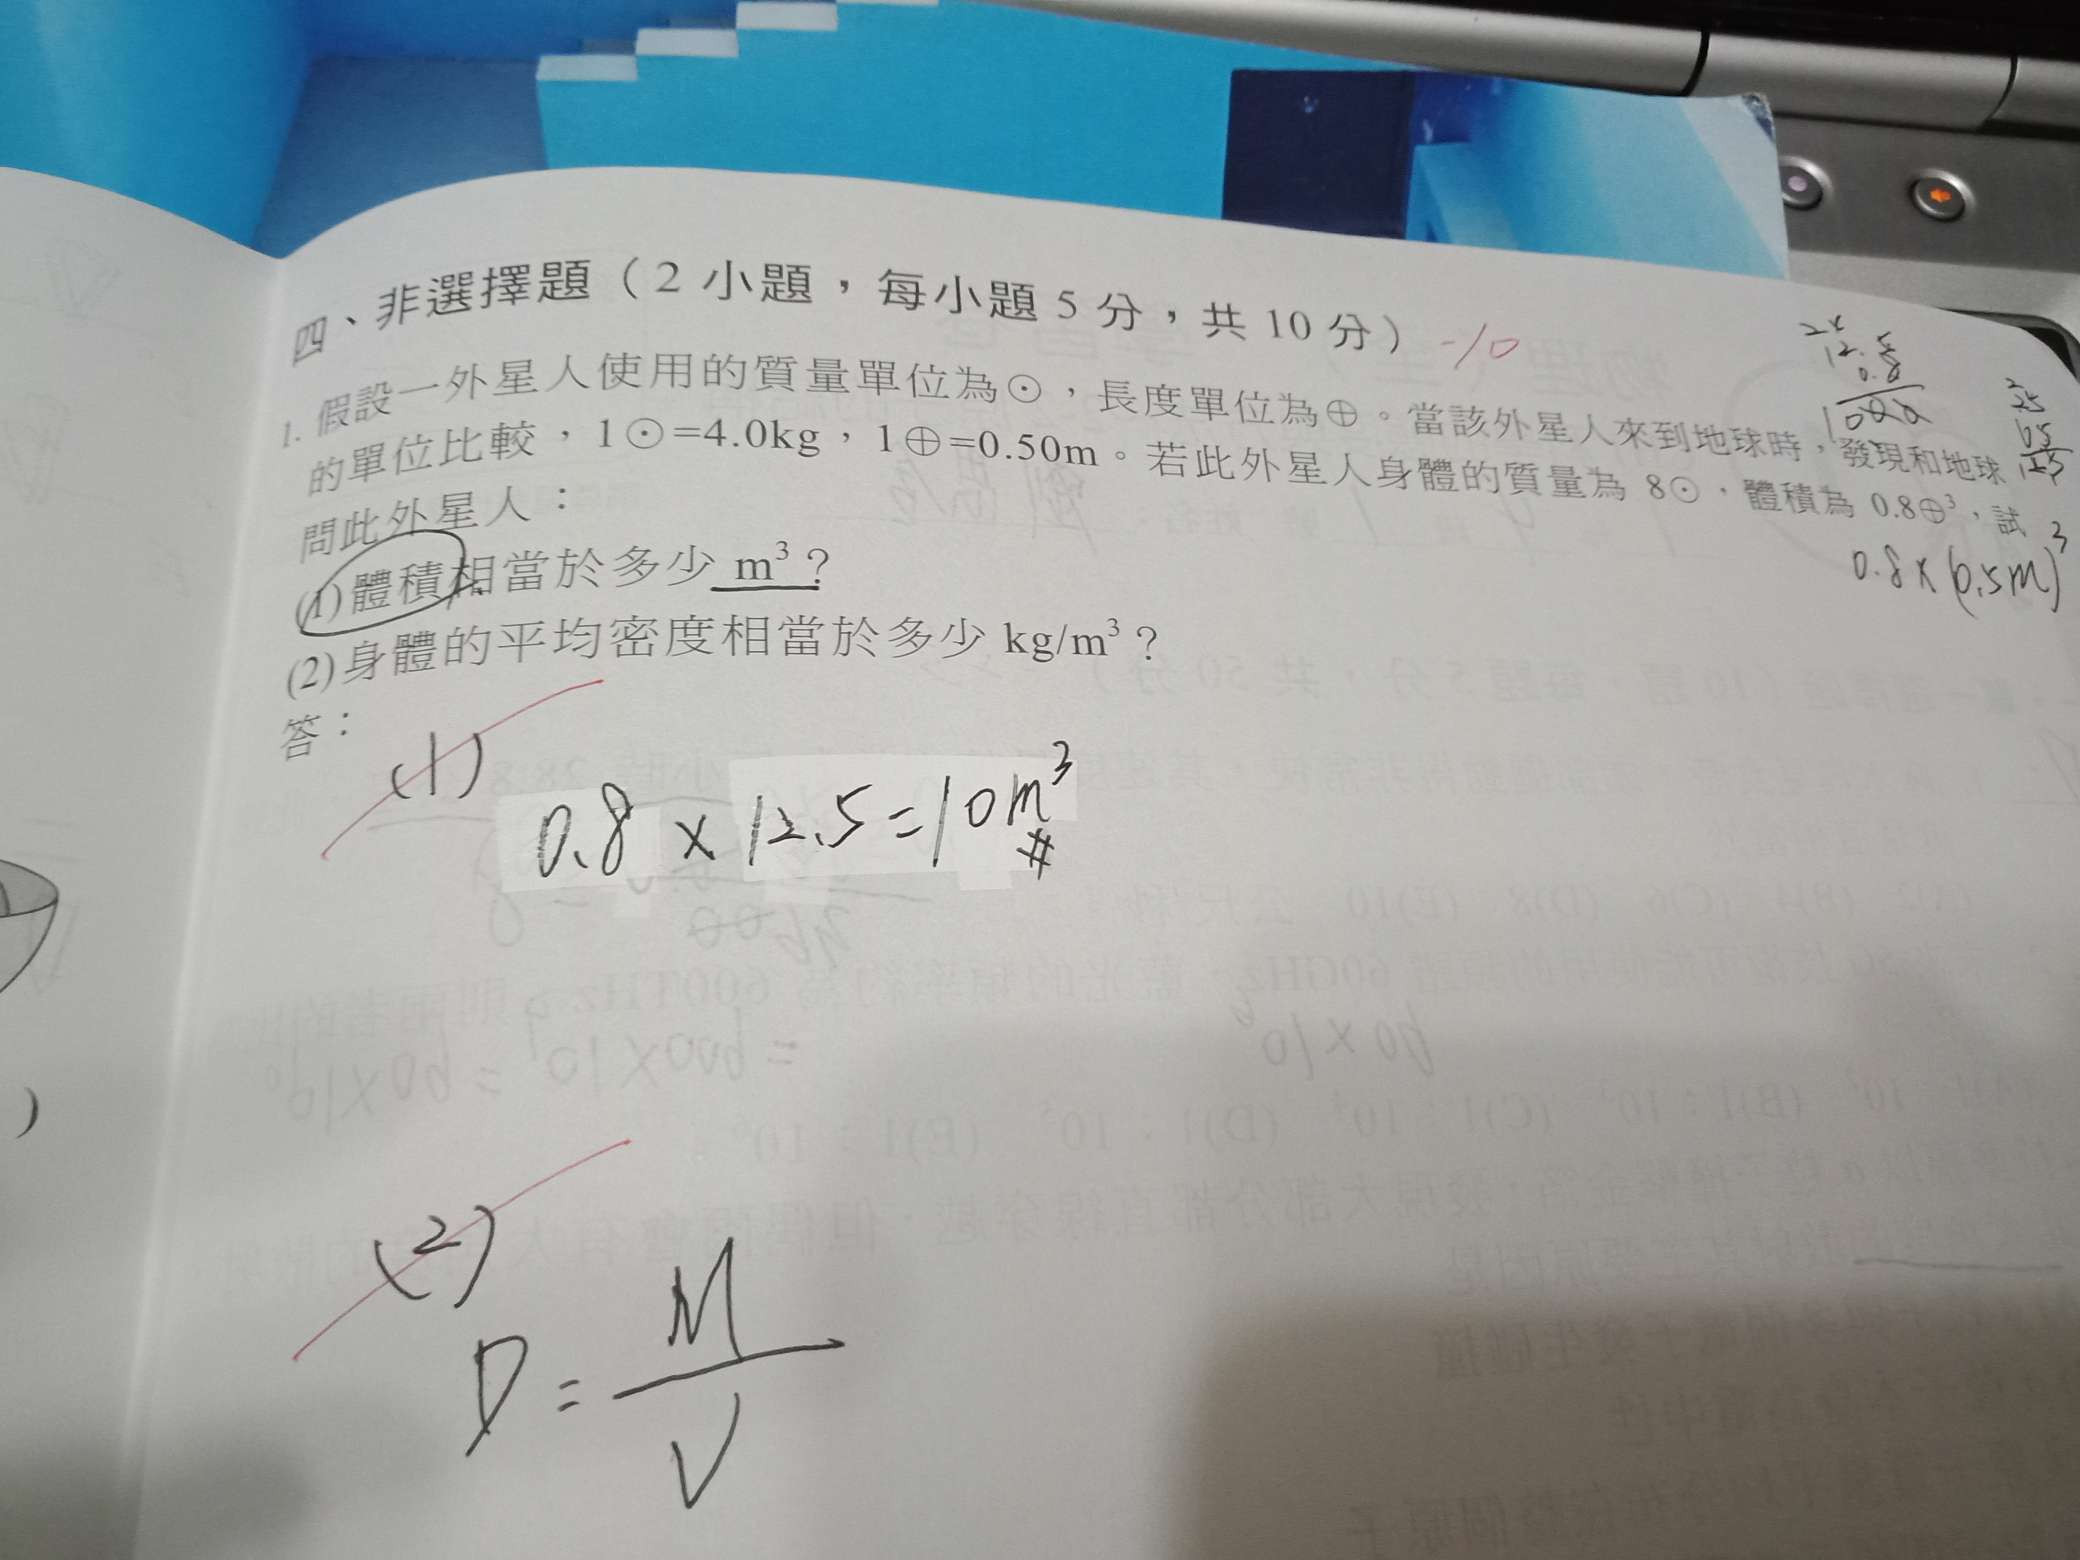 四、非選擇題（2 小題，每小題 5 分，共 10 分） -10
1. 假設一外星人使用的質量單位為⊙，長度單位為⊕。當該外星人來到地球時，發現和地球
的單位比較，1⊙=4.0kg，1⊕=0.50m。若此外星人身體的質量為 8⊙，體積為 0.8⊕³，試
問此外星人：
(1)體積相當於多少 m³？
(2)身體的平均密度相當於多少 kg/m³？
答：
12.5
0.8
0.8×(0.5m)³
(1)
0.8 × 12.5=10m³
#
(2)
D = M
V